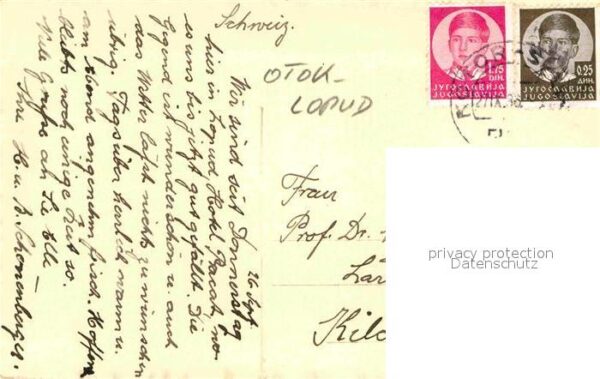 Schweiz.
OTOK-
LOPUD
26. Sept.
Wir sind seit Donnerstag
hier in Lopud Hotel Pracat, wo
es uns bis jetzt gut gefällt. Die
Gegend ist wunderschön u. auch
das Wetter lässt nichts zu wünschen
übrig. Tags über herrlich warm u.
am Abend angenehm frisch. Hoffen
bleibts noch einige Zeit so.
Viele Grüsse an Sie Alle
Ihre H. u. B. Schönenberger.
Frau
Prof. Dr.
Kilc
1.75
ДИН.
ЈУГОСЛАВИЈА
JUGOSLAVIJA
0.25
ДИН.
ЈУГОСЛАВИЈА
JUGOSLAVIJA
privacy protection
Datenschutz